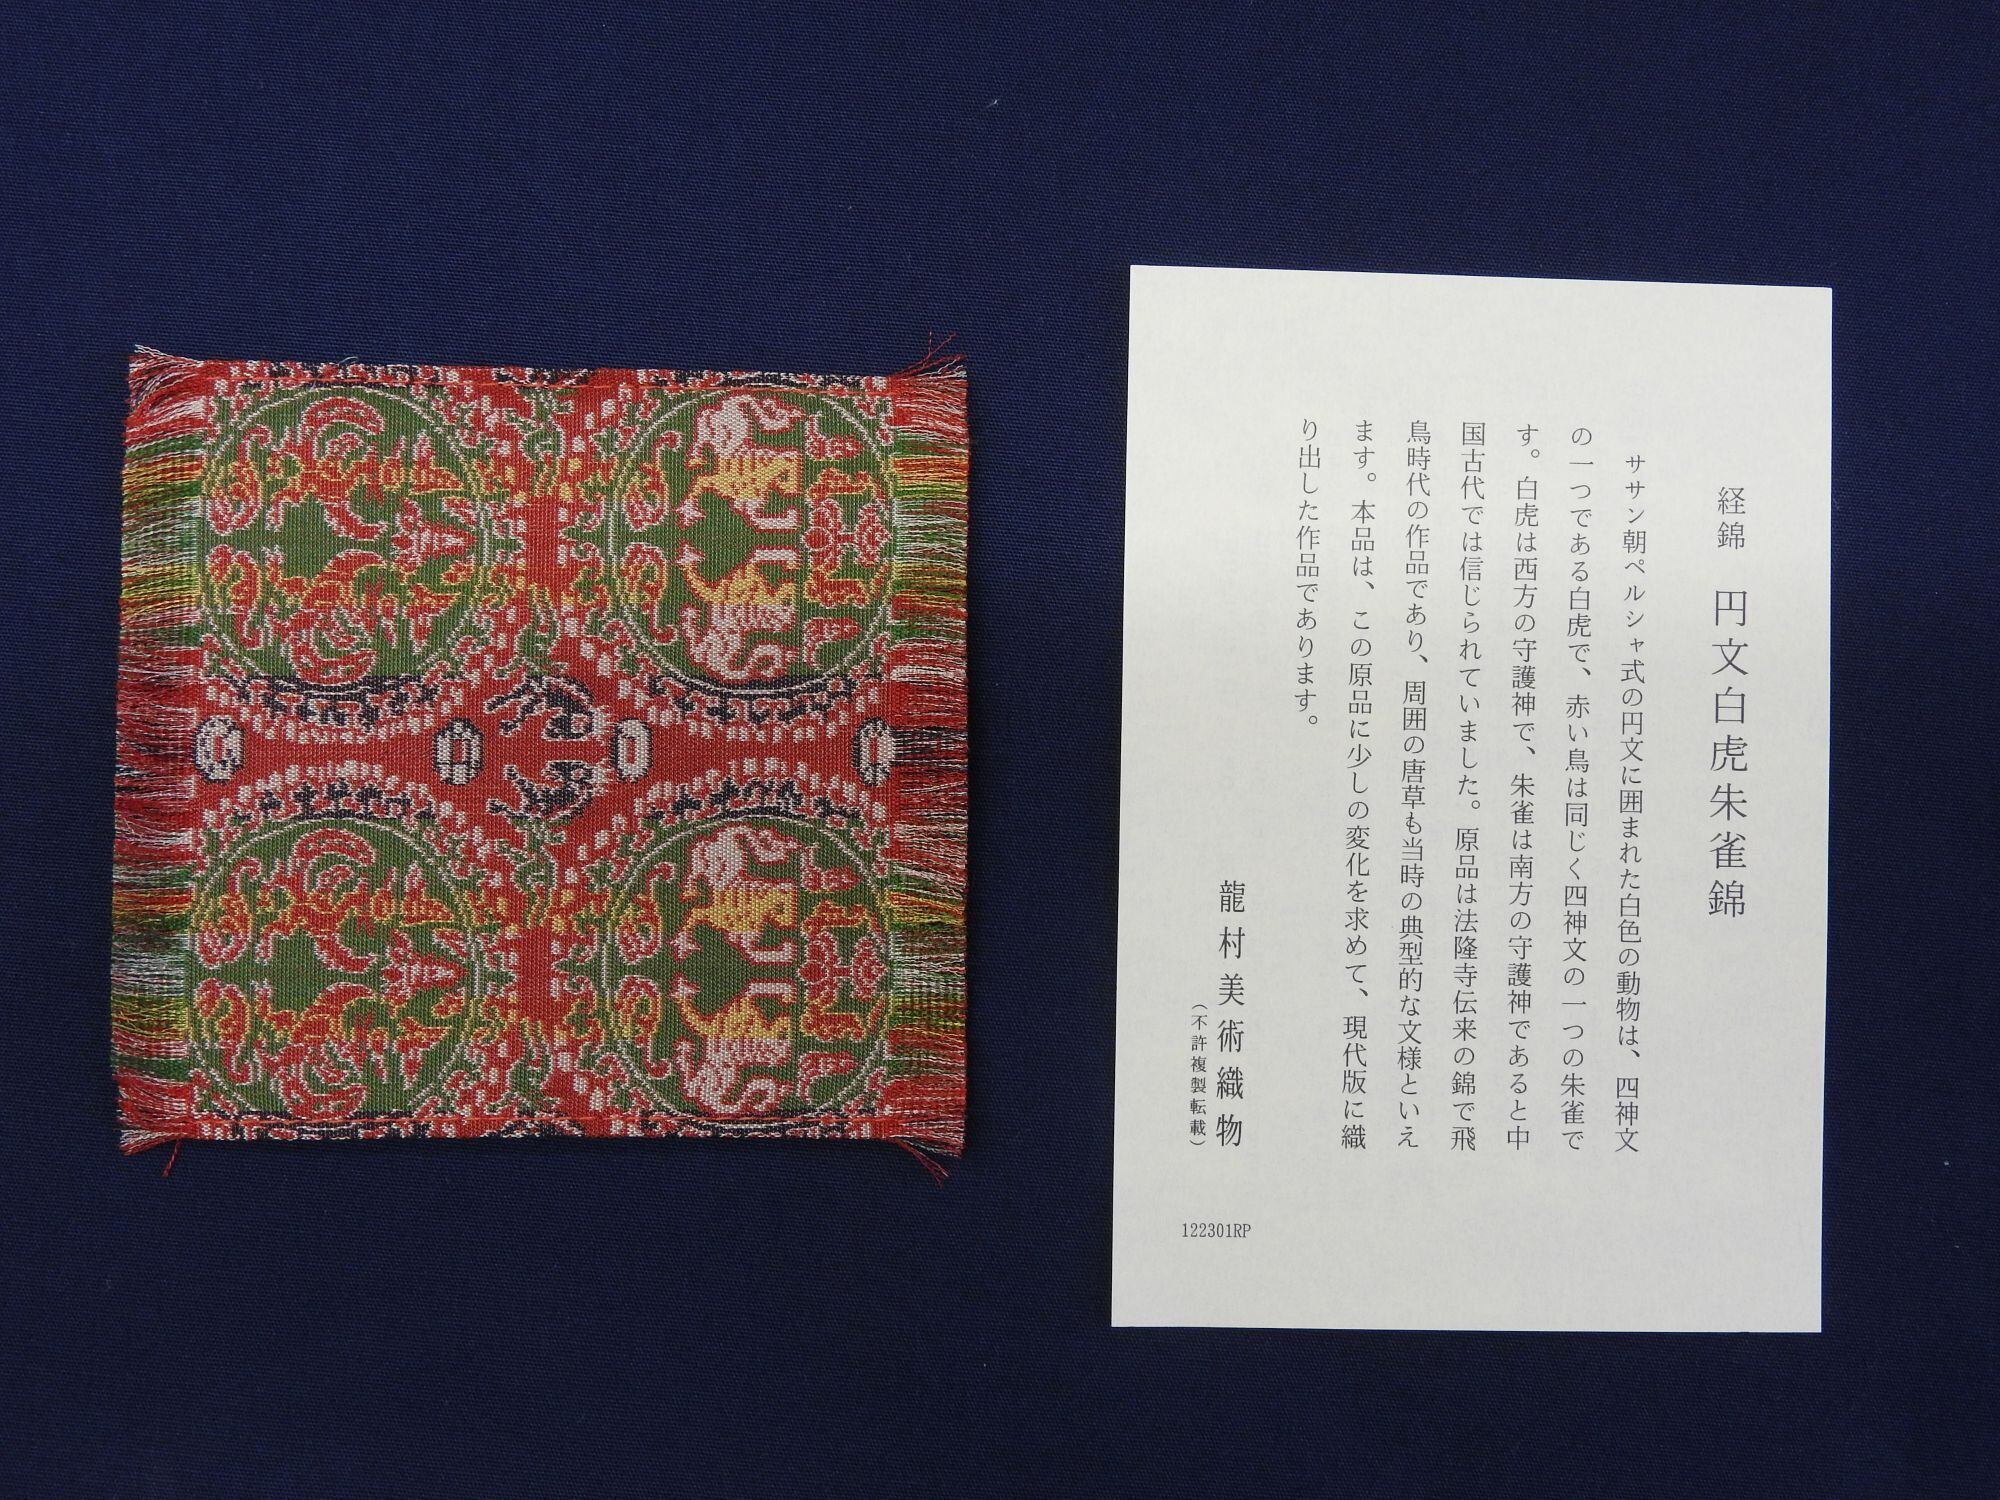 経錦　円文白虎朱雀錦
ササン朝ペルシャ式の円文に囲まれた白色の動物は、四神文
の一つである白虎で、赤い鳥は同じく四神文の一つの朱雀で
す。白虎は西方の守護神で、朱雀は南方の守護神であると中
国古代では信じられていました。原品は法隆寺伝来の錦で飛
鳥時代の作品であり、周囲の唐草も当時の典型的な文様といえ
ます。本品は、この原品に少しの変化を求めて、現代版に織
り出した作品であります。
龍村美術織物
（不許複製転載）
122301RP